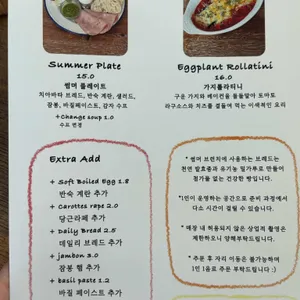 Summer Plate
15.0
썸머 플레이트
치아바타 브레드, 반숙 계란, 샐러드,
잠봉, 바질페이스트, 감자 수프
+Change soup 1.0
수프 변경
Eggplant Rollatini
16.0
가지롤라티니
구운 가지와 베이컨을 돌돌말아 토마토
라구소스와 치즈를 곁들여 먹는 이색적인 요리
Extra Add
+ Soft Boiled Egg 1.8
반숙 계란 추가
+ Carottes rape 2.0
당근라페 추가
+ Daily Bread 2.5
데일리 브레드 추가
+ jambon 3.0
잠봉 햄 추가
+ basil paste 1.2
바질 페이스트 추가
* 썸머 브런치에 사용하는 브레드는
천연 발효종과 유기농 밀가루로 만들어
풍미가 깊은 건강한 빵입니다.
*1인이 운영하는 공간으로 준비 과정에서
다소 시간이 걸릴 수 있습니다.
* 매장 내 허용되지 않은 상업적 촬영은
제한하오니 양해부탁드립니다.
* 주문 후 자리 이동은 불가능하며
1인 1음료 주문 부탁드립니다 :)